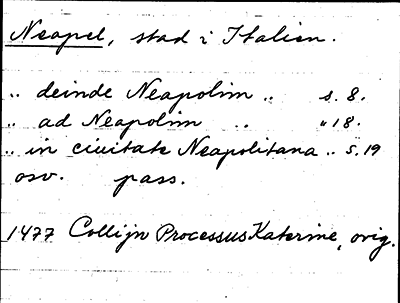 Neapel, stad i Italien.
.. deinde Neapolim .. s. 8.
.. ad Neapolim .. " 18.
.. in ciuitate Neapolitana .. s. 19
osv. pass.
1477 Collijn Processus Katerine, orig.